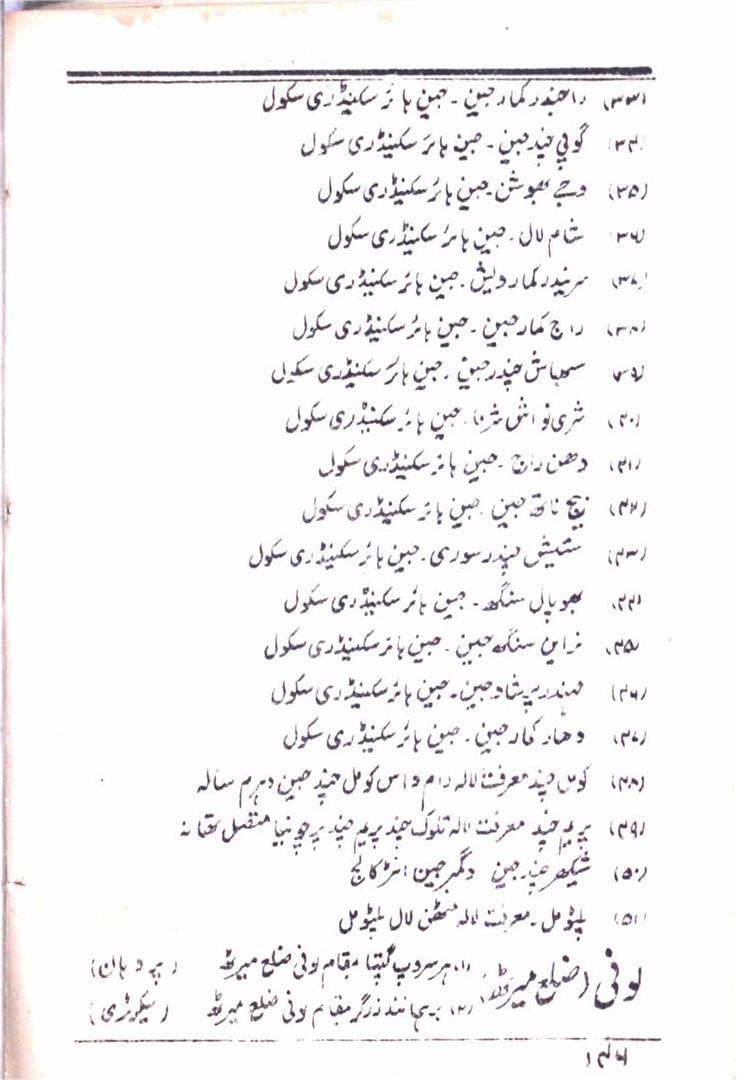 (۳۳) راجندر کمار جین ۔ جین ہائر سکینڈری سکول
(۳۴) گوپی چند جین ۔ جین ہائر سکینڈری سکول
(۳۵) وجے بھوشن ۔ جین ہائر سکینڈری سکول
(۳۶) شام لال ۔ جین ہائر سکینڈری سکول
(۳۷) سریندر کمار ویش ۔ جین ہائر سکینڈری سکول
(۳۸) راج کمار جین ۔ جین ہائر سکینڈری سکول
(۳۹) سبھاش چندر جین ۔ جین ہائر سکینڈری سکول
(۴۰) شری نواس شرما ۔ جین ہائر سکینڈری سکول
(۴۱) دھن راج ۔ جین ہائر سکینڈری سکول
(۴۲) بیج ناتھ جین ۔ جین ہائر سکینڈری سکول
(۴۳) ستیش چندر سوری ۔ جین ہائر سکینڈری سکول
(۴۴) بھوپال سنگھ ۔ جین ہائر سکینڈری سکول
(۴۵) نراین سنگھ جین ۔ جین ہائر سکینڈری سکول
(۴۶) مہندر پرشاد جین ۔ جین ہائر سکینڈری سکول
(۴۷) کمار جین ۔ جین ہائر سکینڈری سکول
(۴۸) کومل چند معرفت لالہ رام داس کومل چند جین دہرم سالہ
(۴۹) پریم چند معرفت لالہ تلوک چند پریم چند متصل تھانہ
(۵۰) شیکھر چندر جین دگمبر جین انٹر کالج
(۵۱) پلٹومل ۔ معرفت لالہ مٹھن لال پلٹومل
لونی (ضلع میرٹھ) (۱) ہر سروپ گپتا مقام لونی ضلع میرٹھ (پردہان)
(۲) برہمانند زرگر مقام لونی ضلع میرٹھ (سیکرٹری)
۱۴۶